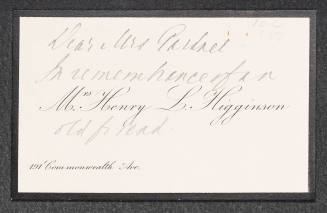 Dear Mrs
In remembrance of an
Mrs. Henry L. Higginson
old friend.
191 Commonwealth Ave.